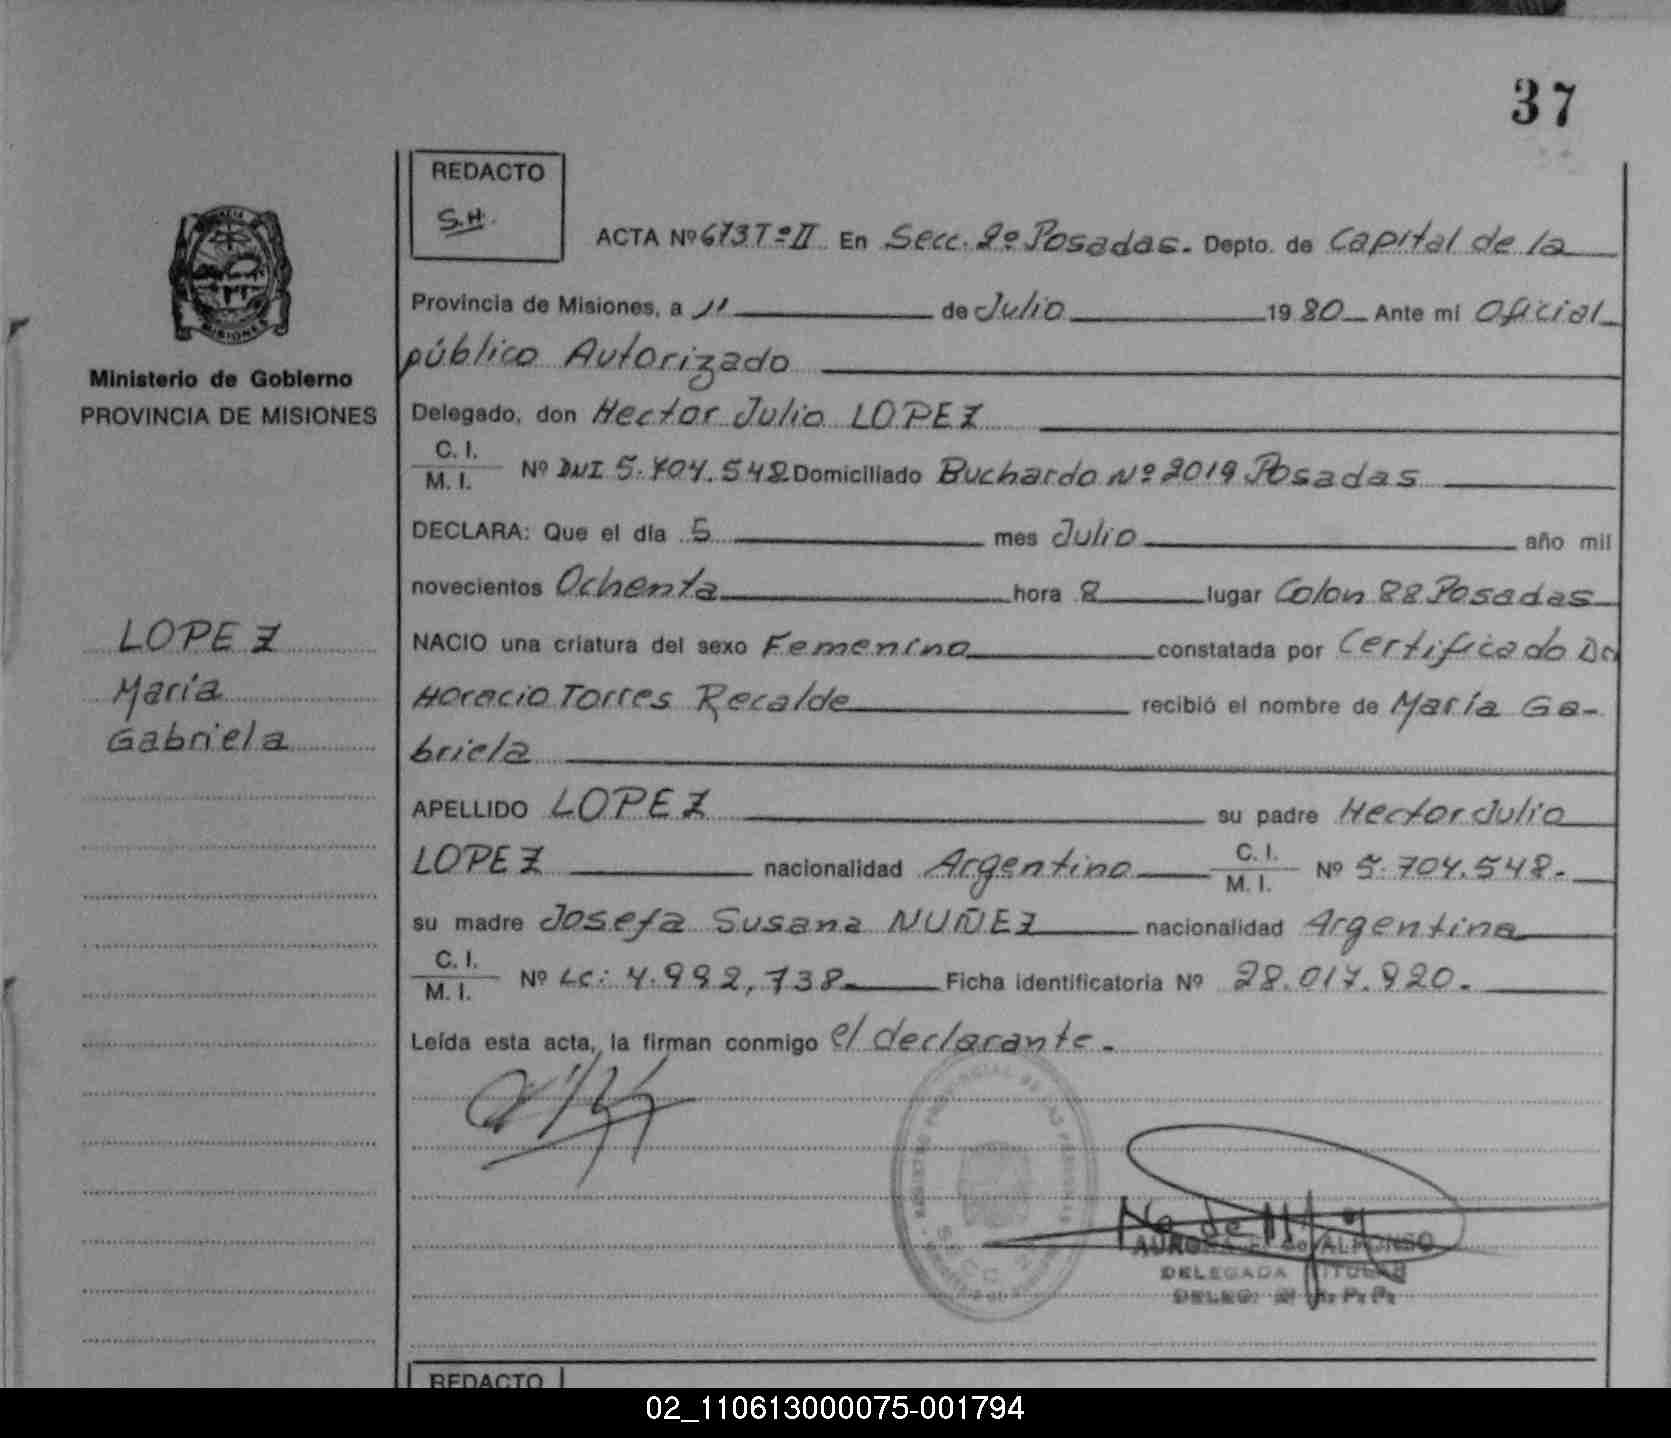 37
REDACTO
S.H.
ACTA Nº 673 Tº II En Secc. 2º Posadas. Depto. de Capital de la
Provincia de Misiones, a 11 de Julio 1980 Ante mi Oficial
público Autorizado
Delegado, don Hector Julio LOPEZ
C. I.
M. I. Nº DNI 5.704.548 Domiciliado Buchardo Nº 2019 Posadas
DECLARA: Que el día 5 mes Julio año mil
novecientos Ochenta hora 8 lugar Colon 88 Posadas
NACIO una criatura del sexo Femenino constatada por Certificado Dr
Horacio Torres Recalde recibió el nombre de María Ga-
briela
APELLIDO LOPEZ su padre Hector Julio
LOPEZ nacionalidad Argentino C. I.
M. I. Nº 5.704.548.
su madre Josefa Susana NUÑEZ nacionalidad Argentina
C. I.
M. I. Nº LC: 4.992,738. Ficha identificatoria Nº 28.017.920.
Leída esta acta, la firman conmigo el declarante.
DELEGADA TITULAR
MISIONES
Ministerio de Gobierno
PROVINCIA DE MISIONES
LOPEZ
María
Gabriela
REDACTO
02_110613000075-001794